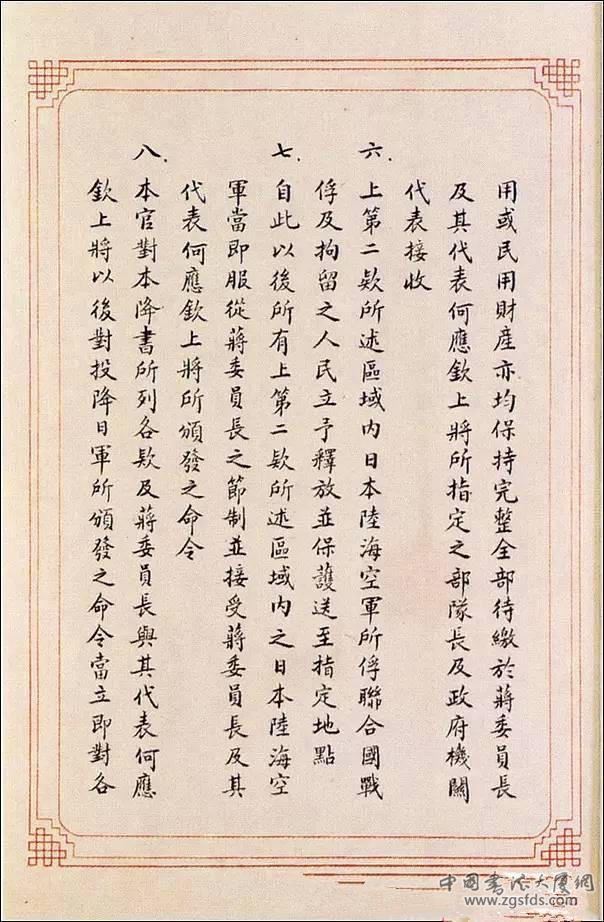 用或民用財産亦均保持完整全部待繳於蔣委員長
及其代表何應欽上將所指定之部隊長及政府機關
代表接收
六.上第二欵所述區域內日本陸海空軍所俘聯合國戰
俘及拘留之人民立予釋放並保護送至指定地點
七.自此以後所有上第二欵所述區域內之日本陸海空
軍當即服從蔣委員長之節制並接受蔣委員長及其
代表何應欽上將所頒發之命令
八.本官對本降書所列各欵及蔣委員長與其代表何應
欽上將以後對投降日軍所頒發之命令當立即對各
中國書法大廈網
www.zgsfds.com